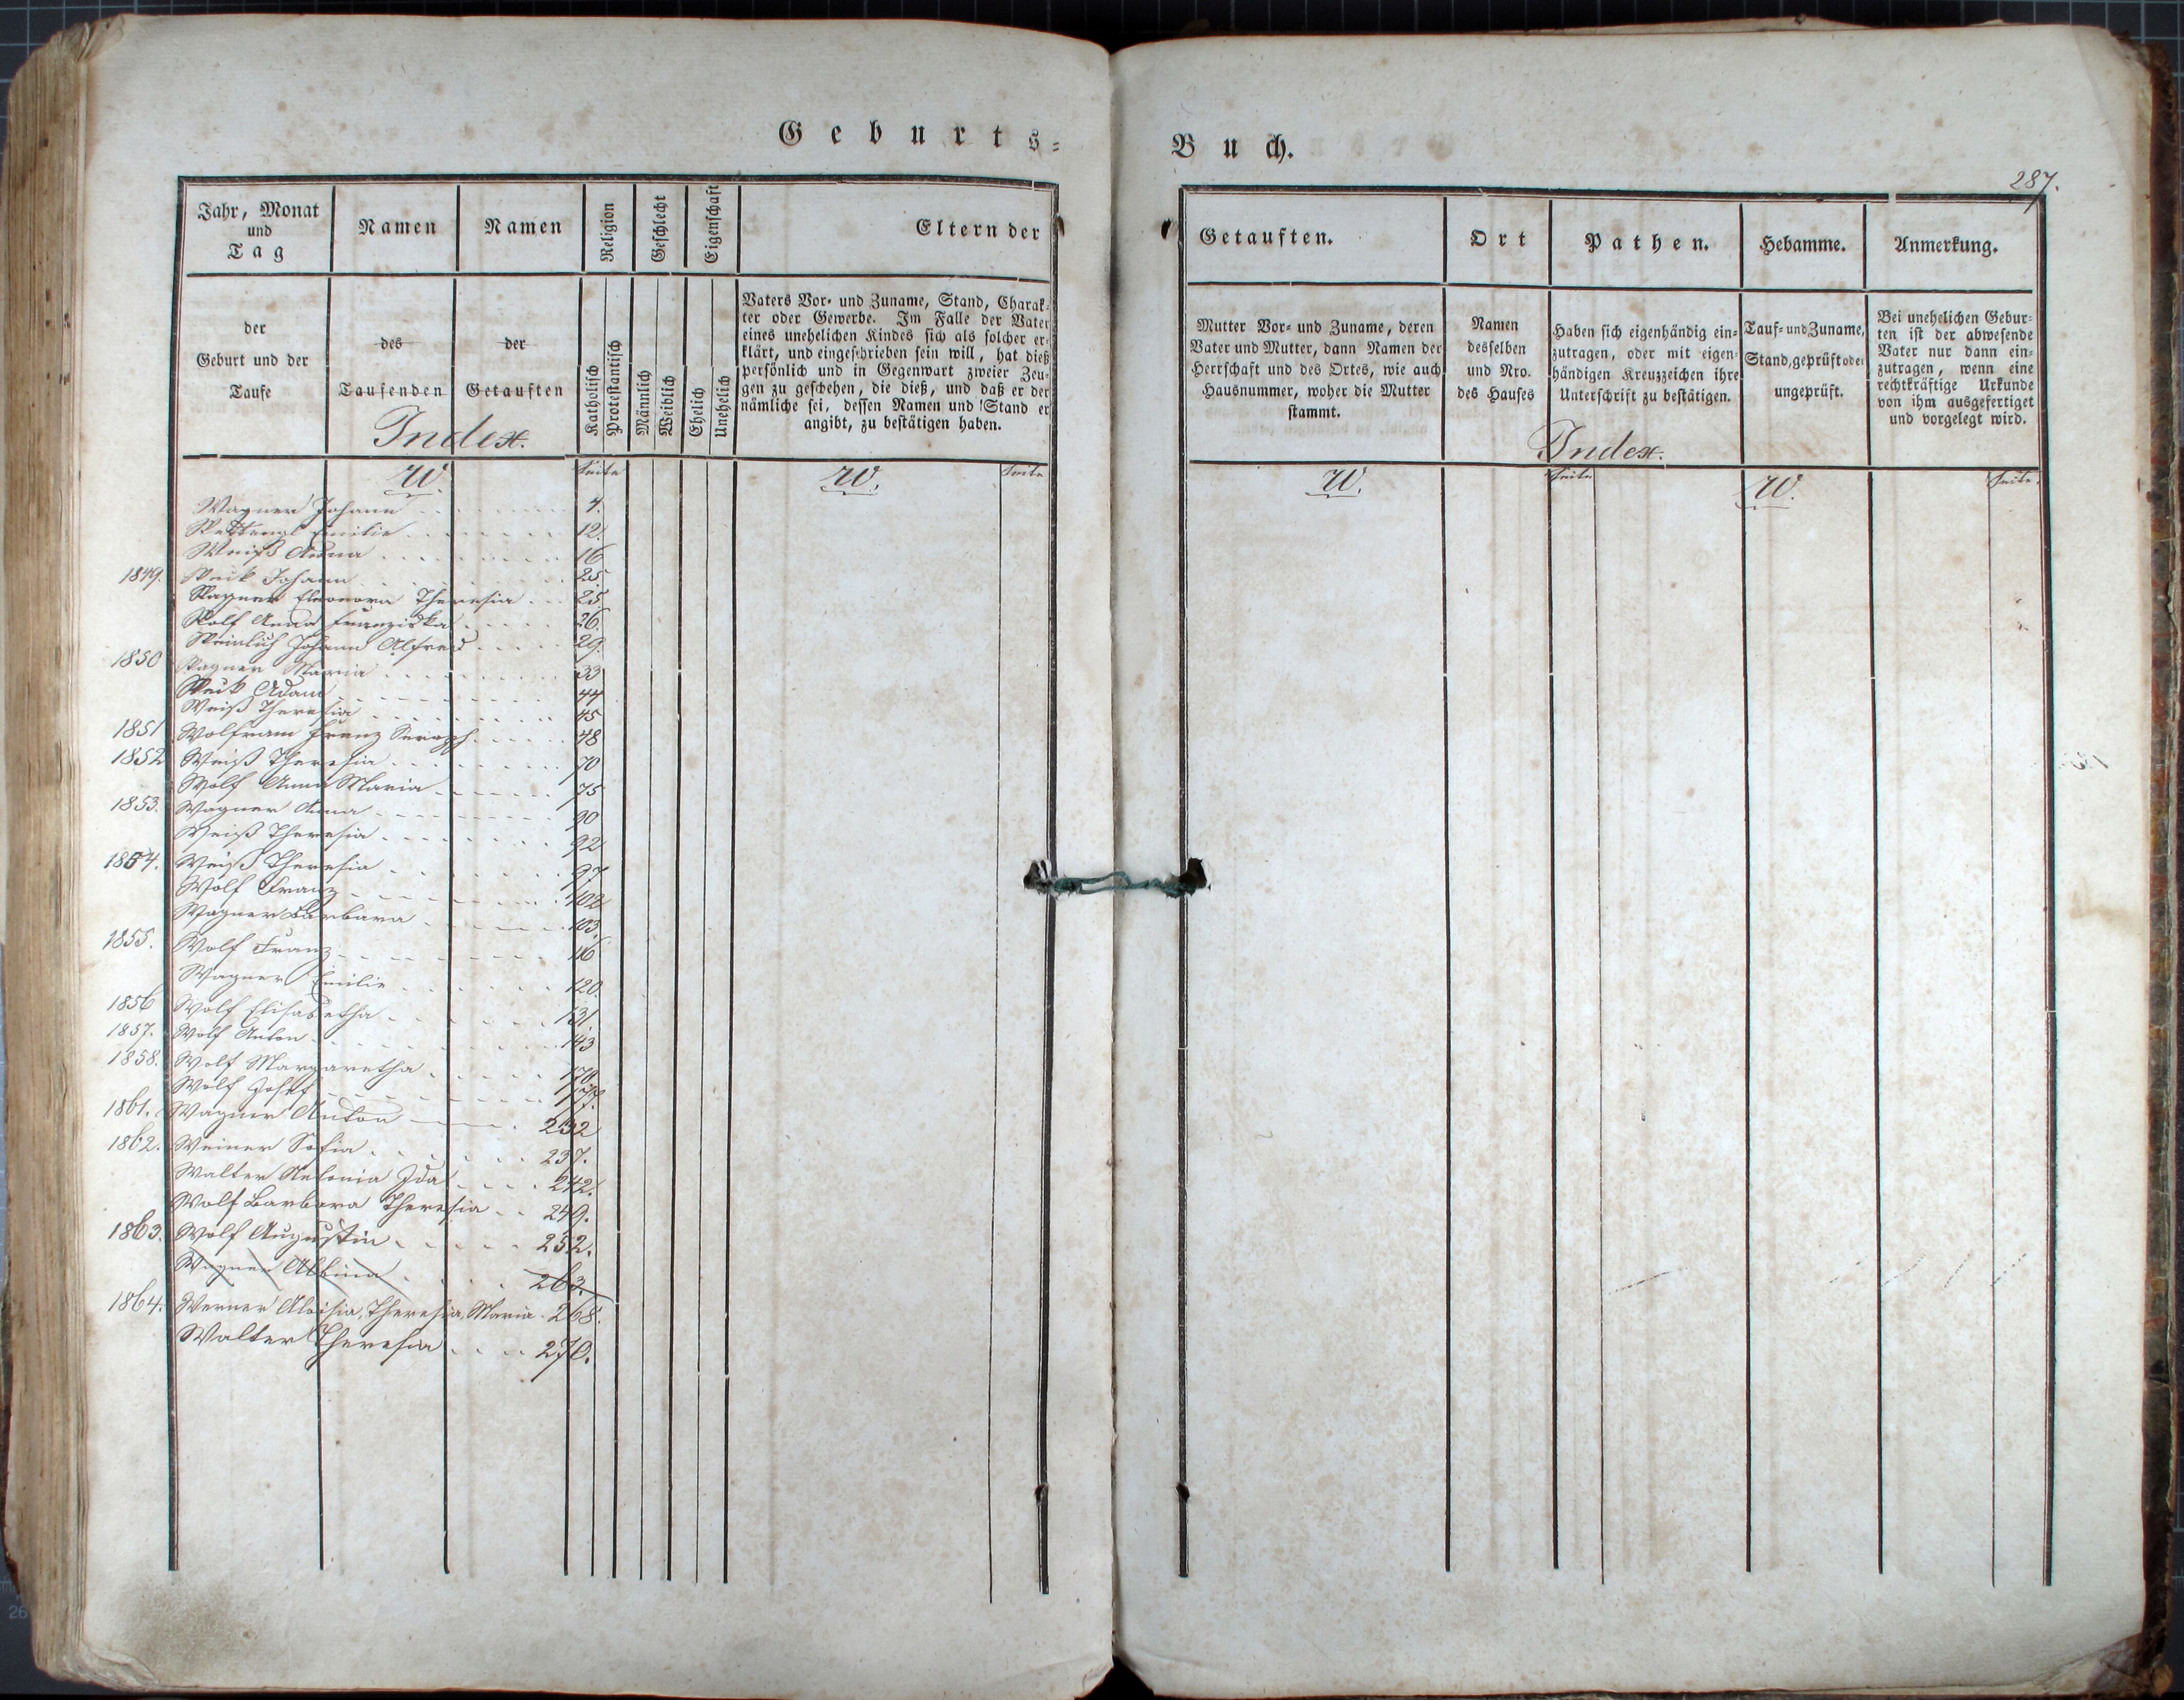 Geburts-
Jahr, Monat
und
Tag
Namen
Namen
Religion
Geschlecht
Eigenschaft
Eltern der
der
Geburt und der
Taufe
des
Taufenden
der
Getauften
Katholisch
Protestantisch
Männlich
Weiblich
Ehelich
Unehelich
Vaters Vor- und Zuname, Stand, Charak-
ter oder Gewerbe. Im Falle der Vater
eines unehelichen Kindes sich als solcher er-
klärt, und eingeschrieben sein will, hat dieß
persönlich und in Gegenwart zweier Zeu-
gen zu geschehen, die dieß, und daß er der
nämliche sei, dessen Namen und Stand er
angibt, zu bestätigen haben.
Index.
W. Seite
W. Seite
Wagner Johann 4.
Emilie 12.
Weiß Anna 16
1849. Johann 25.
Wagner Eleonora Theresia 25.
Wolf Anna Franziska 26.
Johann Alfred 29.
1850 Wagner Maria 33
Adam 44
Weiß Theresia 45
1851 Wolfram Franz Seraph 48
1852 Weiß Theresia 70
Wolf Anna Maria 75
1853. Wagner Anna 90
Weiß Theresia 92
1854. Weiß Theresia 97
Wolf Franz 102
Wagner Barbara 103.
1855. Wolf Franz 116
Wagner Emilie 120.
1856 Wolf Elisabetha 131.
1857. Wolf Anton 143
1858. Wolf Margaretha 170
Wolf Josef 177.
1861. Wagner Anton 232
1862. Weiner Sofia 237.
Walter Antonia Ida 242.
Wolf Barbara Theresia 249.
1863. Wolf Augustin 252.
Wagner Albina 263.
1864. Werner Aloisia, Theresia, Maria 268.
Walter Theresia 270.
Buch.
287.
Getauften.
Ort
Pathen.
Hebamme.
Anmerkung.
Mutter Vor- und Zuname, deren
Vater und Mutter, dann Namen der
Herrschaft und des Ortes, wie auch
Hausnummer, woher die Mutter
stammt.
Namen
desselben
und Nro.
des Hauses
Haben sich eigenhändig ein-
zutragen, oder mit eigen-
händigen Kreuzzeichen ihre
Unterschrift zu bestätigen.
Tauf- und Zuname,
Stand, geprüft oder
ungeprüft.
Bei unehelichen Gebur-
ten ist der abwesende
Vater nur dann ein-
zutragen, wenn eine
rechtkräftige Urkunde
von ihm ausgefertiget
und vorgelegt wird.
Index.
W. Seite
W. Seite.